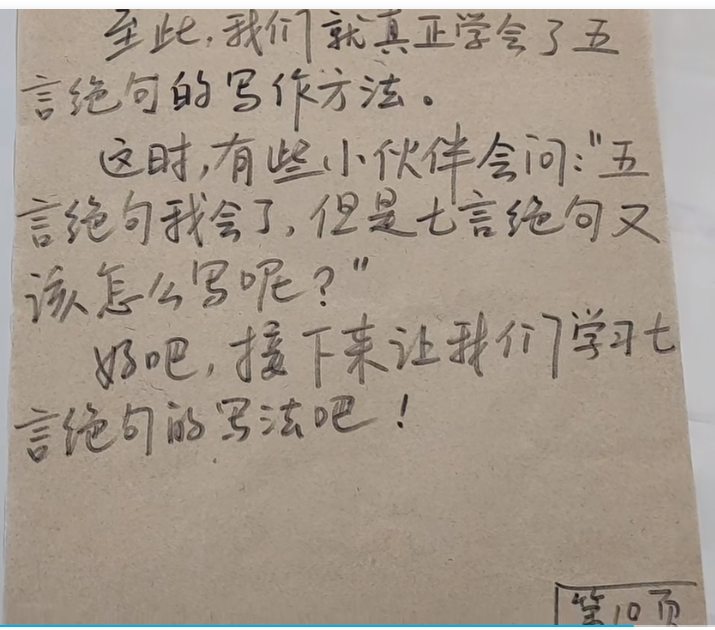 至此,我们就真正学会了五
言绝句的写作方法。
这时,有些小伙伴会问:"五
言绝句我会了,但是七言绝句又
该怎么写呢?"
好吧,接下来让我们学习七
言绝句的写法吧!
第10页